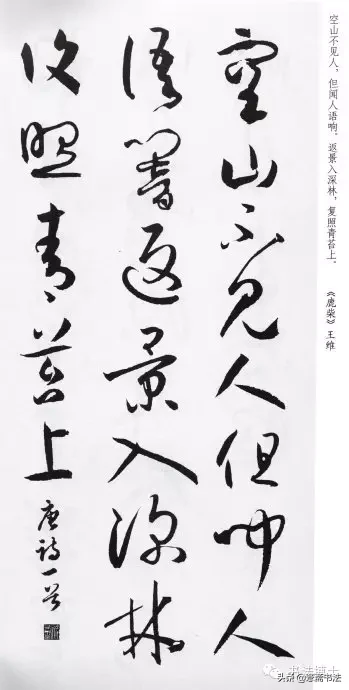 空山不见人，但闻人语响。返景入深林，复照青苔上。
《鹿柴》王维
空山不见人但闻人
语响返景入深林
复照青苔上
唐诗一首
书法博士
头条@意斋书法